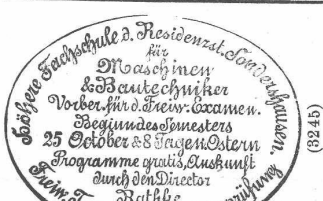 Höhere Fachschule d. Residenzst. Sondershausen.
für
Maschinen
& Bautechniker
Vorber. für d. Freiw. Examen.
Beginn des Semesters
25 October & 8 Tage n. Ostern
Programme gratis, Auskunft
durch den Director
Rathke
Freiw.
(3245)